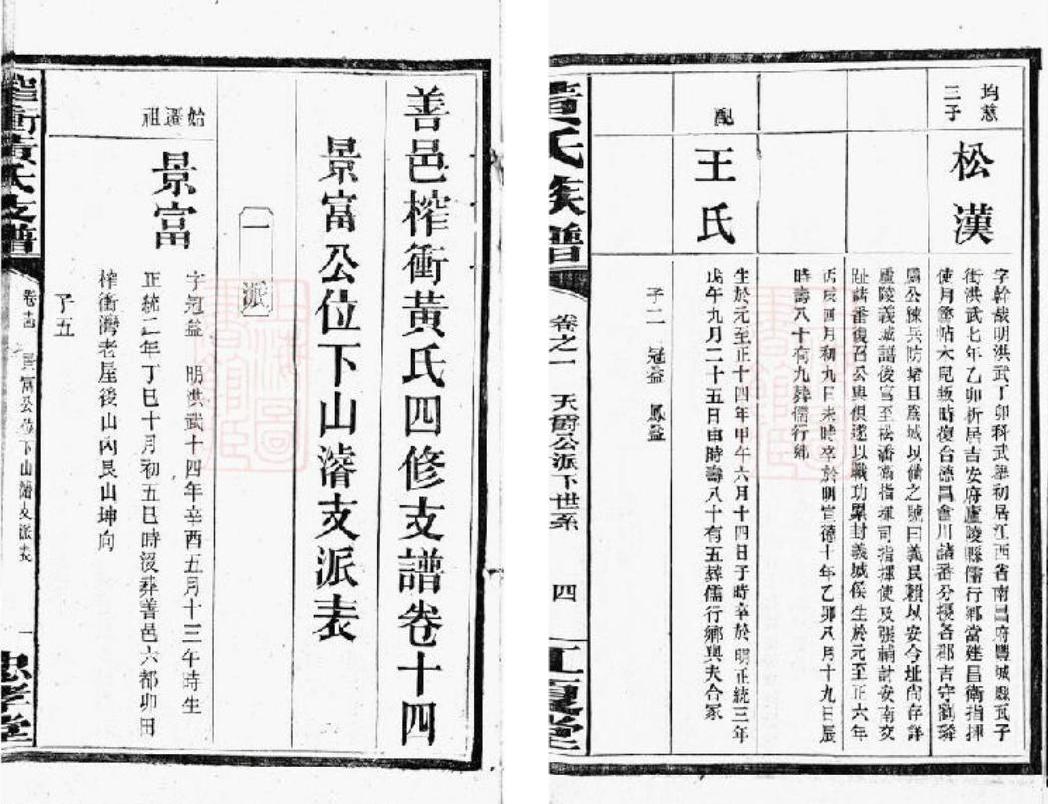 均慈
三子
松漢
字幹裁明洪武丁卯科武舉初居江西省南昌府豐城縣瓦子
街洪武七年乙卯析居吉安府廬陵縣儒行鄉當建昌衛指揮
使月魯帖木兒叛時復合德昌會川諸番分擾各郡吉守劉
屬公練兵防堵且爲城以備之號曰義民賴以安今址尚存詳
廬陵義城譜後官至松潘衛指揮司指揮使及張輔討安南交
趾諸番復召公與俱遂以戰功累封義城侯生於元至正六年
丙戌四月初九日未時卒於明宣德十年乙卯八月十九日辰
時壽八十有九葬儒行鄉
配
王氏
生於元至正十四年甲午六月十四日子時卒於明正統三年
戊午九月二十五日申時壽八十有五葬儒行鄉與夫合冢
子二 冠益 鳳益
黃氏族譜 卷之一 天爵公派下世系 四 江夏堂
善邑榨衝黃氏四修支譜卷十四
景富公位下山濬支派表
一派
始遷祖
景富
字冠益 明洪武十四年辛酉五月十三午時生
正統二年丁巳十月初五巳時沒葬善邑六都卯田
榨衝灣老屋後山內艮山坤向
子五
榨衝黃氏支譜 卷十四 景富公位下山濬支派表 一 忠孝堂